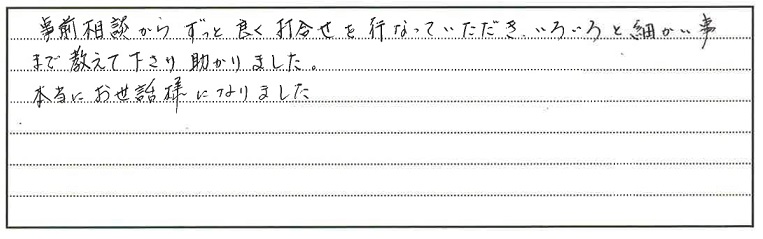 事前相談からずっと良く打合せを行なっていただき、いろいろと細かい事
まで教えて下さり助かりました。
本当にお世話様になりました